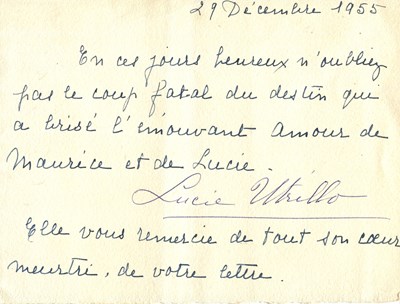 29 Décembre 1955
En ces jours heureux n'oubliez
pas le coup fatal du destin qui
a brisé l'émouvant Amour de
Maurice et de Lucie.
Lucie Utrillo
Elle vous remercie de tout son cœur
meurtri, de votre lettre.